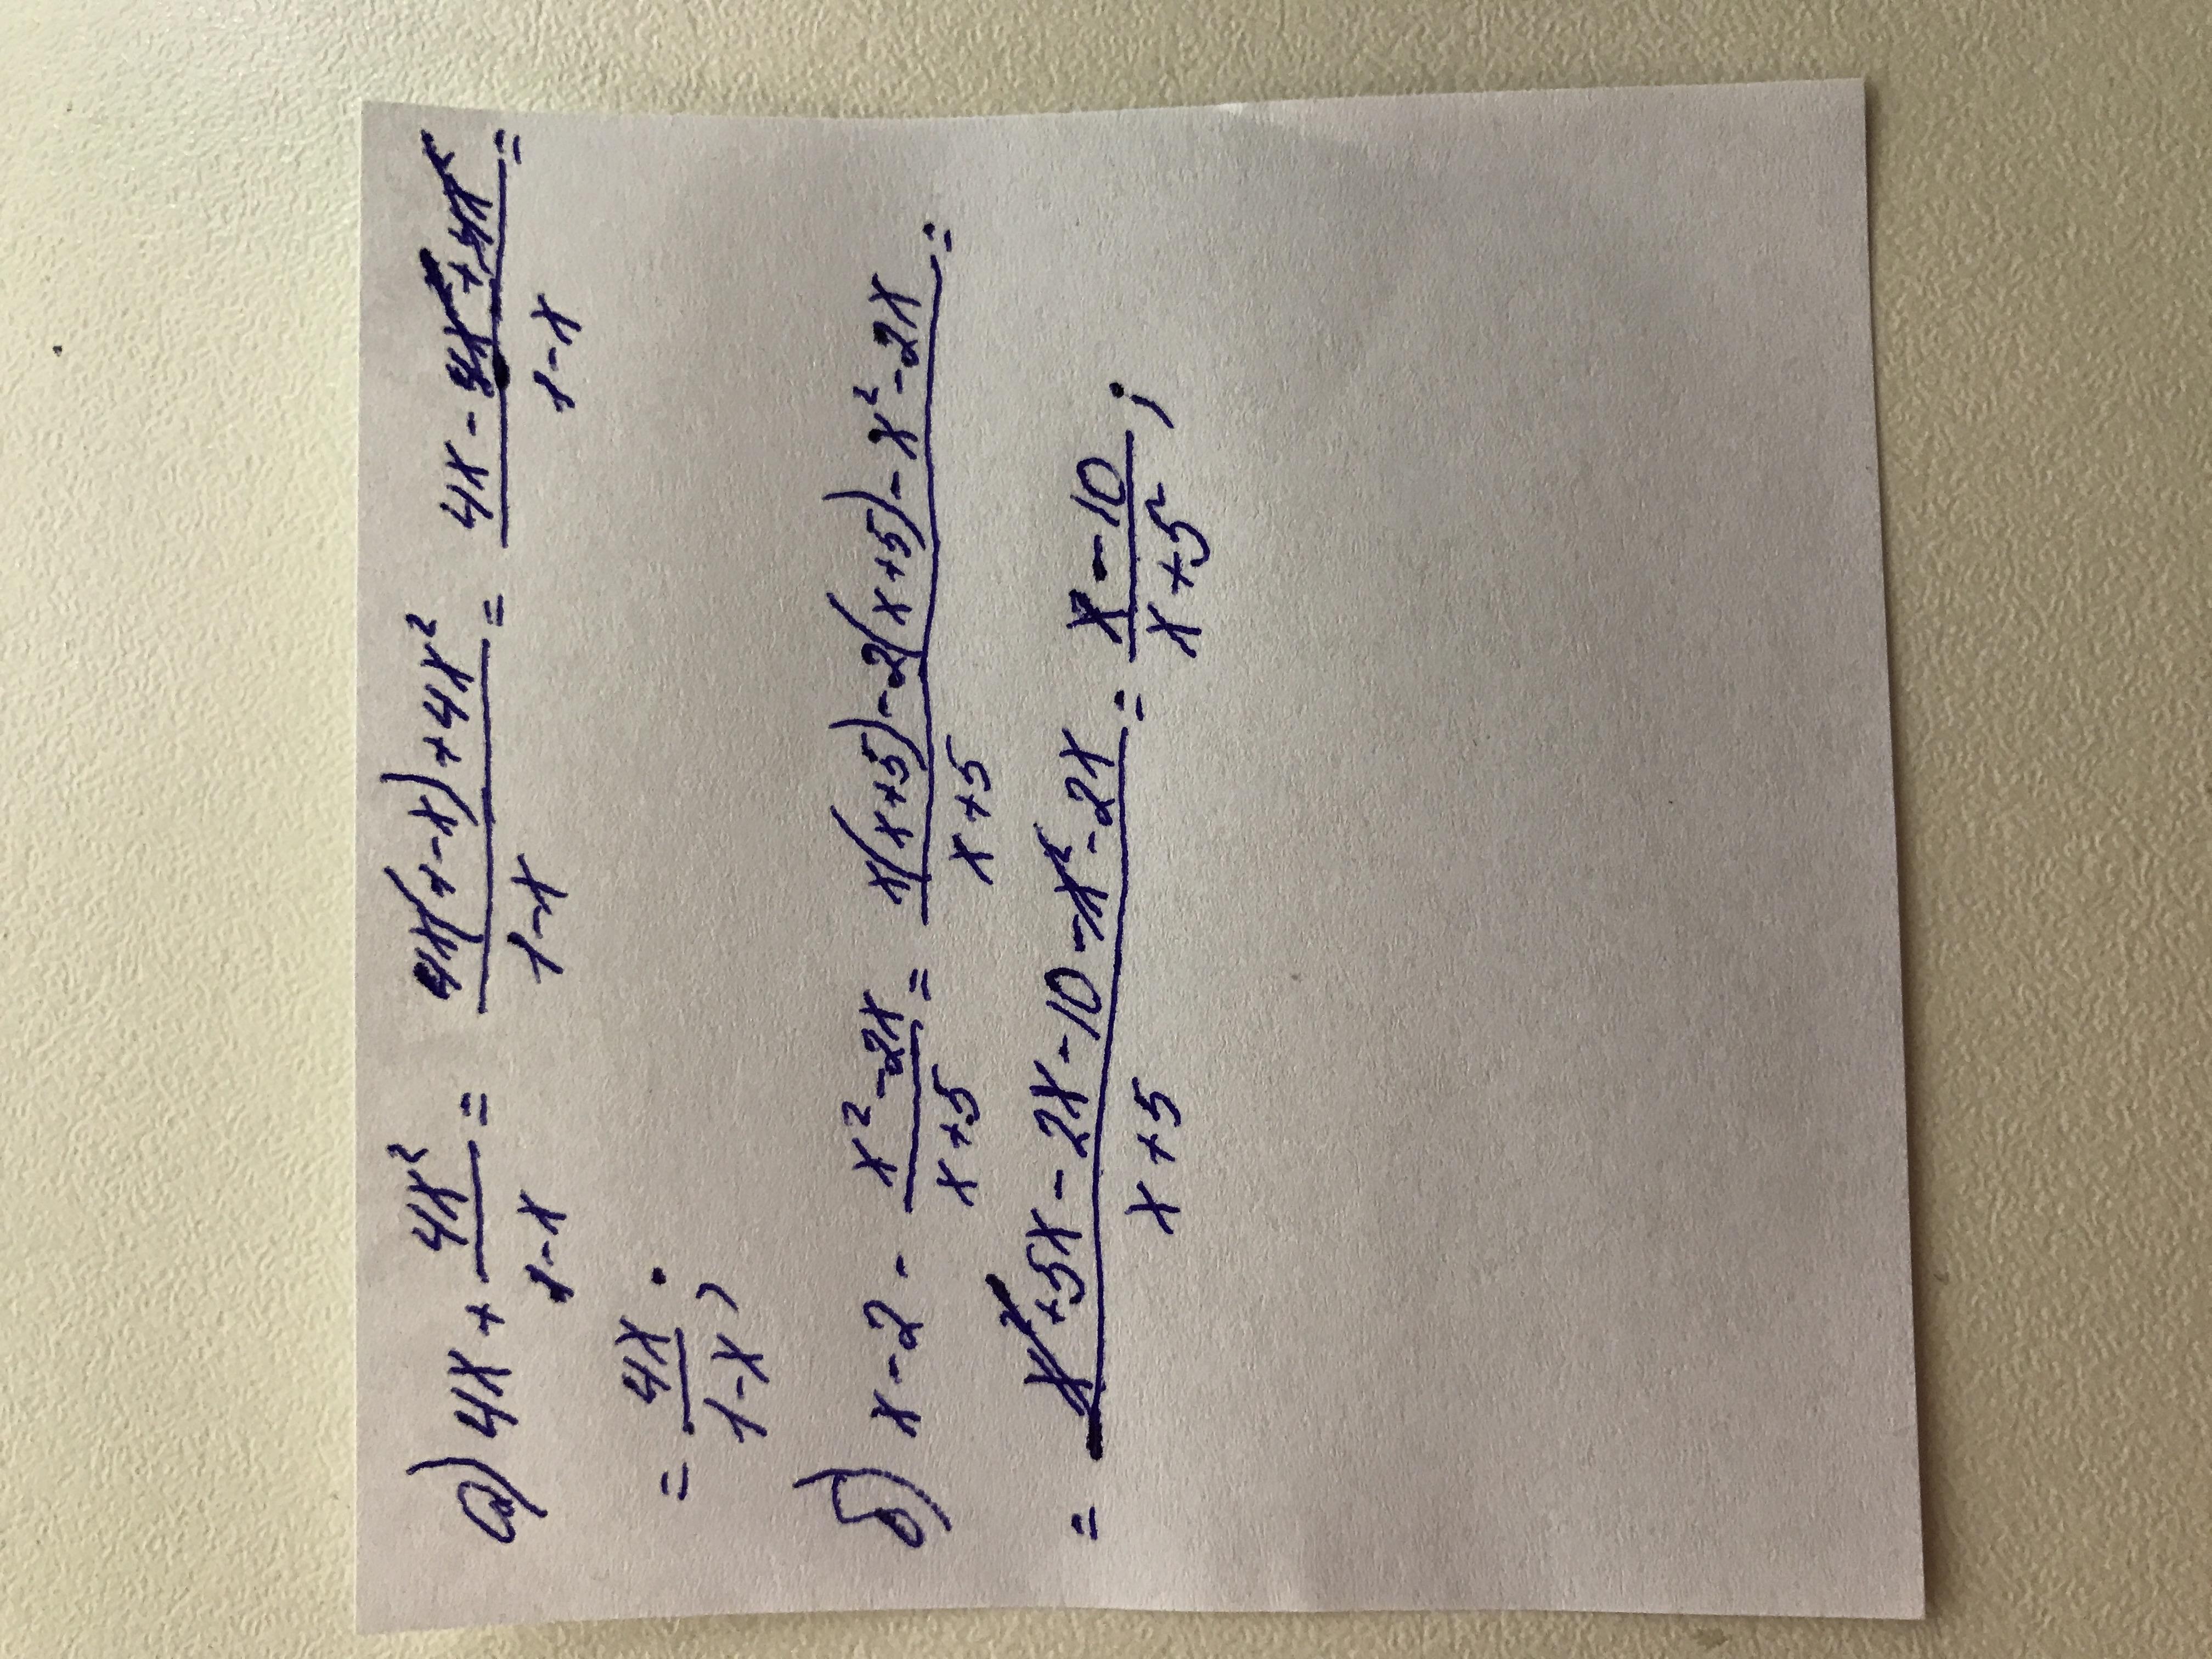 а) 4x + 4x²/(1-x) = (4x(1-x)+4x²)/(1-x) = (4x-4x²+4x²)/(1-x) =
= 4x/(1-x);
б) x-2 - (x²-2x)/(x+5) = (x(x+5)-2(x+5)-x²-2x)/(x+5) =
= (x²+5x-2x-10-x²-2x)/(x+5) = (x-10)/(x+5);